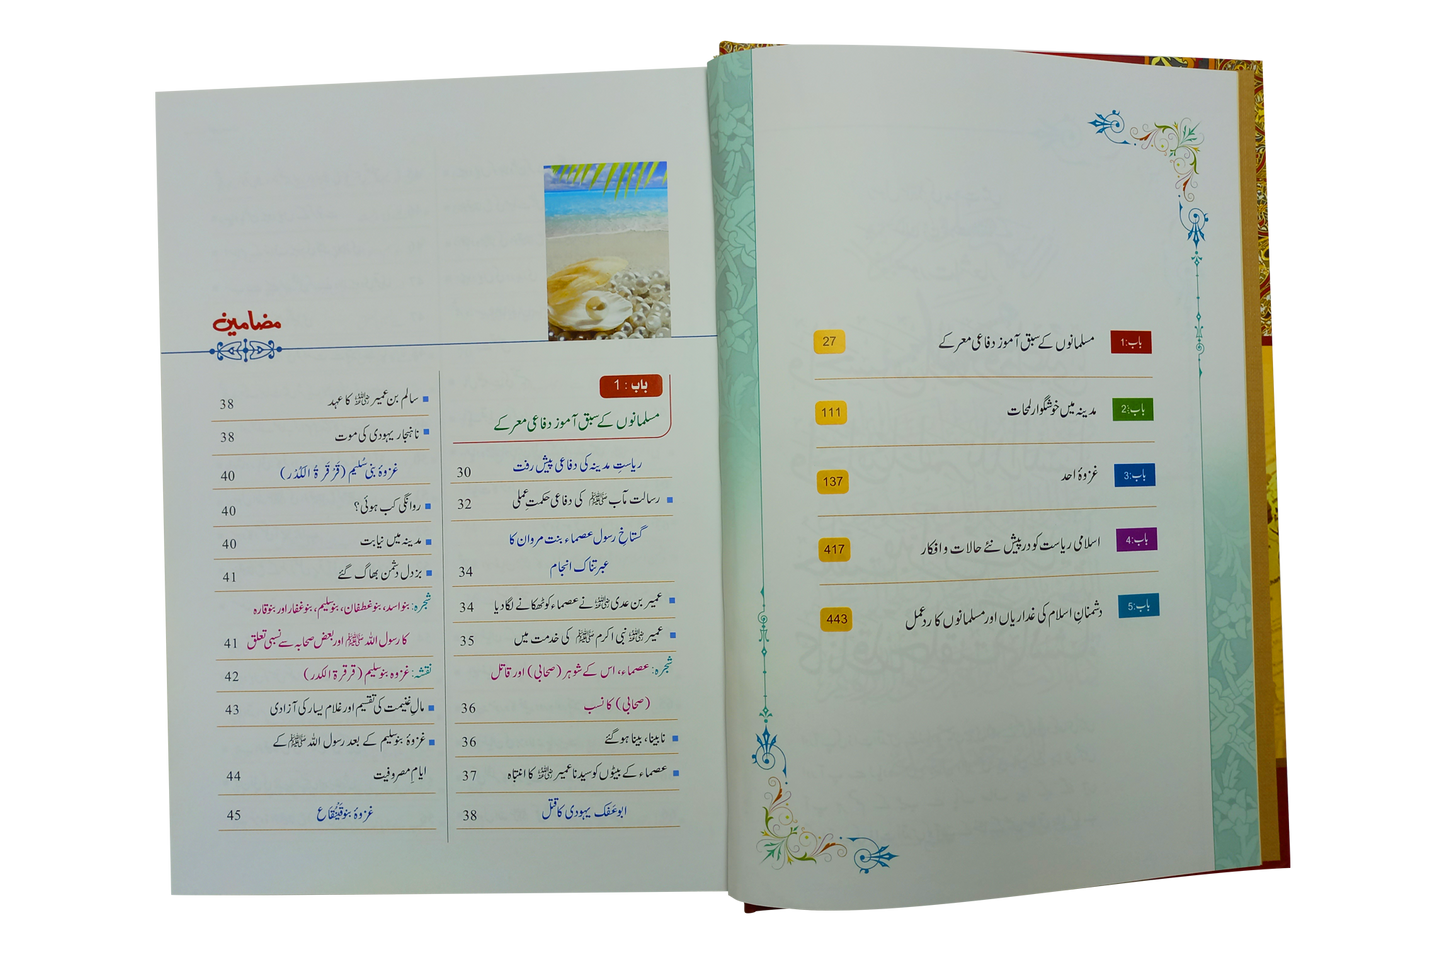 باب:1 مسلمانوں کے سبق آموز دفاعی معرکے 27
باب:2 مدینہ میں خوشگوار لمحات 111
باب:3 غزوۂ احد 137
باب:4 اسلامی ریاست کو درپیش نئے حالات و افکار 417
باب:5 دشمنانِ اسلام کی غداریاں اور مسلمانوں کا ردعمل 443
مضامین
باب : 1
مسلمانوں کے سبق آموز دفاعی معرکے
ریاستِ مدینہ کی دفاعی پیش رفت 30
رسالت مآب ﷺ کی دفاعی حکمتِ عملی 32
گستاخِ رسول عصماء بنت مروان کا
عبرتناک انجام 34
عمیر بن عدی رضی اللہ عنہ نے عصماء کو ٹھکانے لگا دیا 34
عمیر رضی اللہ عنہ نبی اکرم ﷺ کی خدمت میں 35
شجرہ: عصماء، اس کے شوہر (صحابی) اور قاتل
(صحابی) کا نسب 36
نابینا، بینا ہو گئے 36
عصماء کے بیٹوں کو سیدنا عمیر رضی اللہ عنہ کا انتباہ 37
ابوعفک یہودی کا قتل 38
سالم بن عمیر رضی اللہ عنہ کا عہد 38
ناہنجار یہودی کی موت 38
غزوۂ بنی سُلیم (قَرْقَرَةُ الکُدْر) 40
روانگی کب ہوئی؟ 40
مدینہ میں نیابت 40
بزدل دشمن بھاگ گئے 41
شجرہ: بنو اسد، بنو غطفان، بنو سلیم، بنو غفار اور بنو قارہ
کا رسول اللہ ﷺ اور بعض صحابہ سے نسبی تعلق 41
نقشہ: غزوہ بنو سلیم (قرقرة الكدر) 42
مالِ غنیمت کی تقسیم اور غلام یسار کی آزادی 43
غزوۂ بنو سلیم کے بعد رسول اللہ ﷺ کے
ایامِ مصروفیت 44
غزوۂ بنو قَیْنُقَاع 45